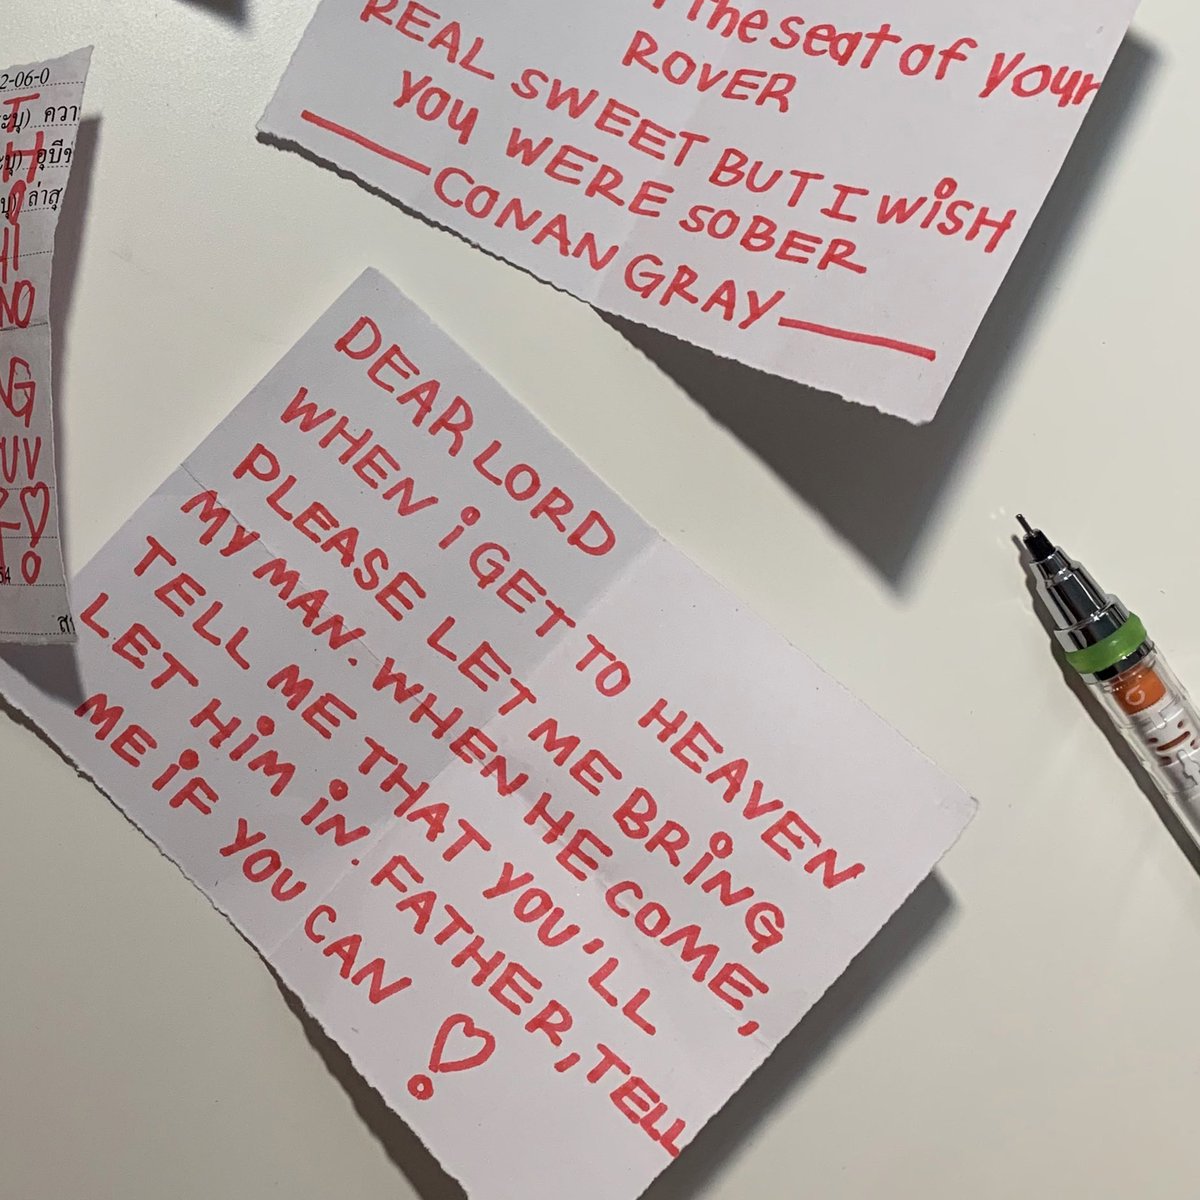 the seat of your
ROVER
REAL SWEET BUT I WiSH
YOU WERE SOBER
CONAN GRAY
DEAR LORD
WHEN i GET TO HEAVEN
PLEASE LET ME BRiNG
MY MAN. WHEN HE COME,
TELL ME THAT YOU'LL
LET HiM iN. FATHER, TELL
ME iF YOU CAN
2-06-0
T
H
NO